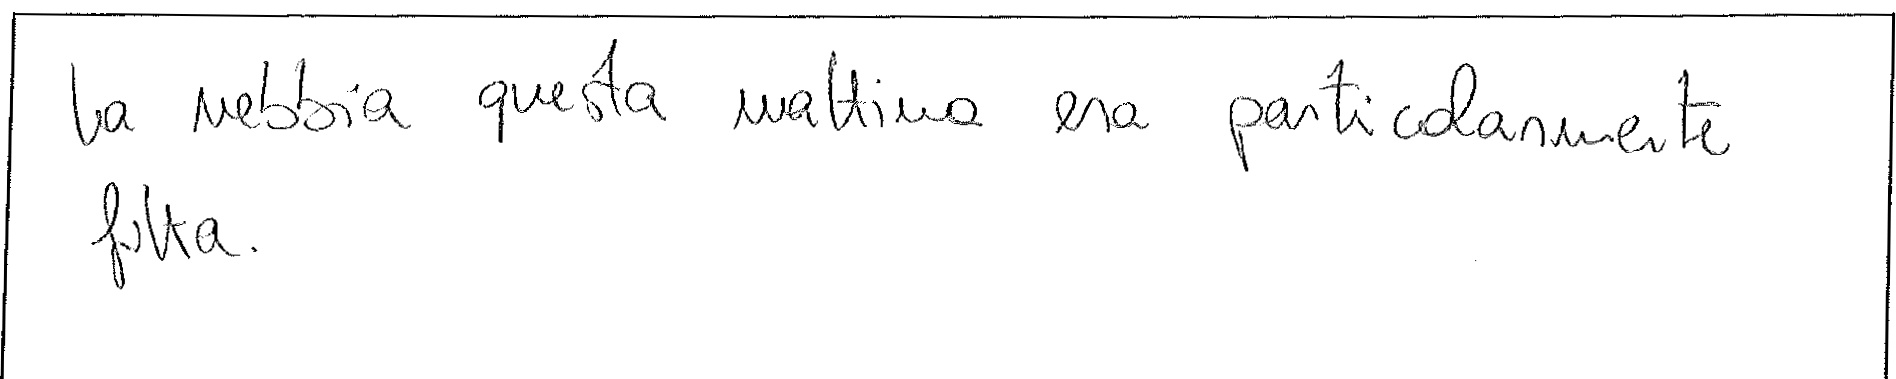 La nebbia questa mattina era particolarmente
folta.